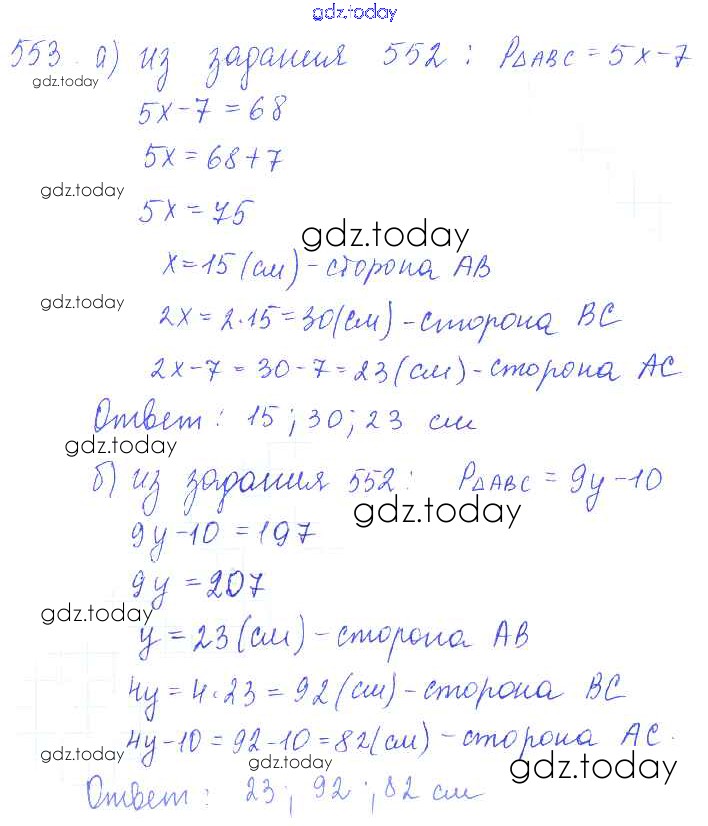 gdz.today
553. а) из задания 552: P△ABC = 5x-7
gdz.today
5x-7=68
5x=68+7
gdz.today
5x=75
gdz.today
x=15(см)-сторона AB
gdz.today
2x=2·15=30(см)-сторона BC
2x-7=30-7=23(см)-сторона AC
Ответ: 15; 30; 23 см
gdz.today
б) из задания 552: P△ABC = 9y-10
gdz.today
9y-10=197
9y=207
gdz.today
y=23(см)-сторона AB
4y=4·23=92(см)-сторона BC
4y-10=92-10=82(см)-сторона AC.
gdz.today gdz.today gdz.today
Ответ: 23; 92; 82 см